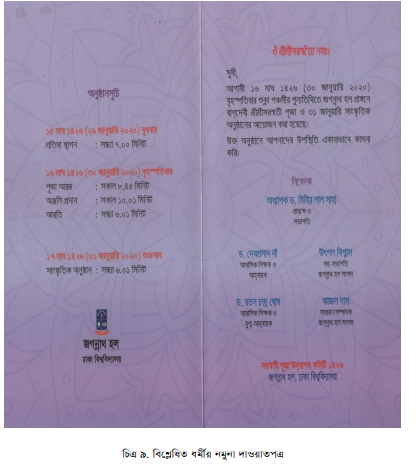 অনুষ্ঠানসূচি
১৫ মাঘ ১৪২৬ (২৯ জানুয়ারি ২০২০) বুধবার
প্রতিমা স্থাপন : সন্ধ্যা ৭.০০ মিনিট
১৬ মাঘ ১৪২৬ (৩০ জানুয়ারি ২০২০) বৃহস্পতিবার
পূজা আরম্ভ : সকাল ৮.৪৫ মিনিট
অঞ্জলি প্রদান : সকাল ১০.০১ মিনিট
আরতি : সন্ধ্যা ৬.০১ মিনিট
১৭ মাঘ ১৪২৬ (৩১ জানুয়ারি ২০২০) শুক্রবার
সাংস্কৃতিক অনুষ্ঠান : সন্ধ্যা ৬.০১ মিনিট
জগন্নাথ হল
ঢাকা বিশ্ববিদ্যালয়
ওঁ শ্রীশ্রীসরস্বত্যৈ নমঃ।
সুধী,
আগামী ১৬ মাঘ ১৪২৬ (৩০ জানুয়ারি ২০২০)
বৃহস্পতিবার শুক্লা পঞ্চমীর পুণ্যতিথিতে জগন্নাথ হল প্রাঙ্গনে
বাগ্‌দেবী শ্রীশ্রীসরস্বতী পূজা ও ৩১ জানুয়ারি সাংস্কৃতিক
অনুষ্ঠানের আয়োজন করা হয়েছে।
উক্ত অনুষ্ঠানে আপনাদের উপস্থিতি একান্তভাবে কামনা
করি।
নিবেদক
অধ্যাপক ড. মিহির লাল সাহা
প্রাধ্যক্ষ ও
সভাপতি
ড. দেবপ্রসাদ দাঁ
আবাসিক শিক্ষক ও
আহ্বায়ক
উৎপল বিশ্বাস
সহ-সভাপতি
জগন্নাথ হল সংসদ
ড. রতন চন্দ্র ঘোষ
আবাসিক শিক্ষক ও
যুগ্ম-আহ্বায়ক
কাজল দাস
সাধারণ সম্পাদক
জগন্নাথ হল সংসদ
সরস্বতী পূজা উদ্‌যাপন কমিটি ১৪২৬
জগন্নাথ হল, ঢাকা বিশ্ববিদ্যালয়
চিত্র ৯. বিশ্লেষিত ধর্মীয় নমুনা দাওয়াতপত্র